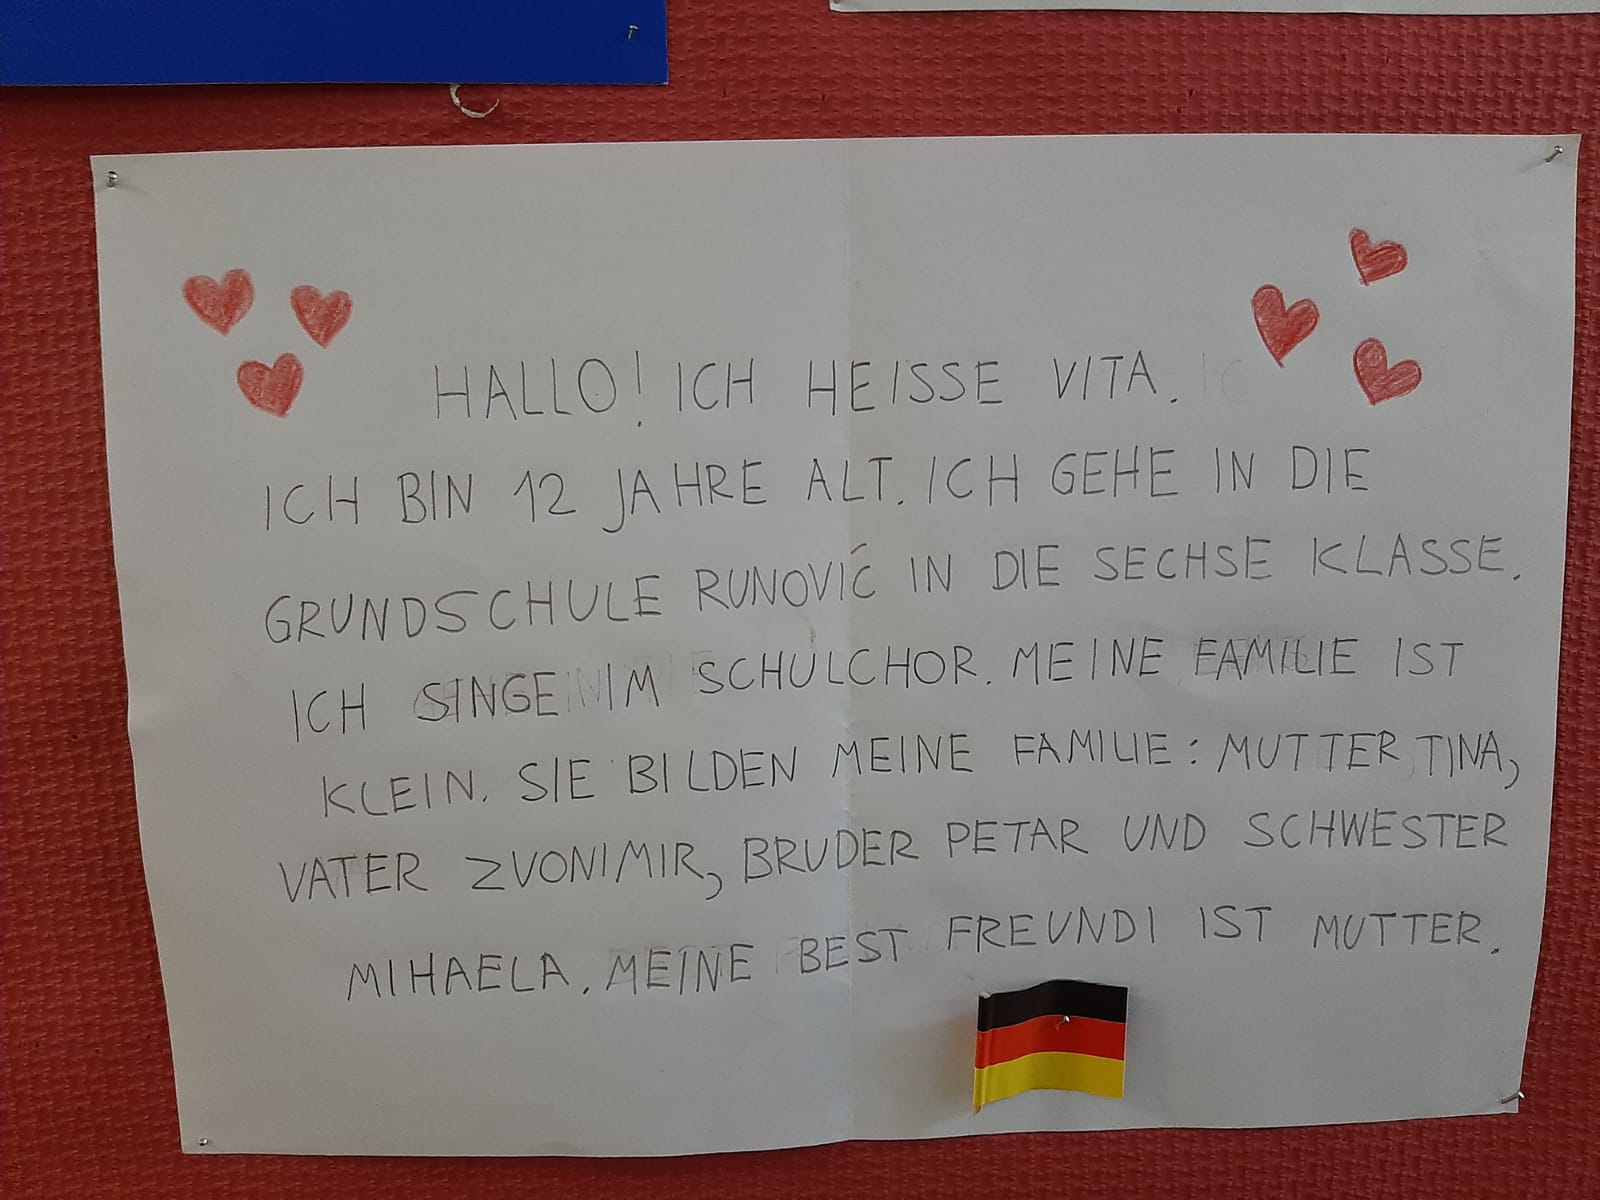 HALLO! ICH HEISSE VITA.
ICH BIN 12 JAHRE ALT. ICH GEHE IN DIE
GRUNDSCHULE RUNOVIĆ IN DIE SECHSE KLASSE.
ICH SINGE IM SCHULCHOR. MEINE FAMILIE IST
KLEIN. SIE BILDEN MEINE FAMILIE: MUTTER TINA,
VATER ZVONIMIR, BRUDER PETAR UND SCHWESTER
MIHAELA. MEINE BEST FREUNDI IST MUTTER.